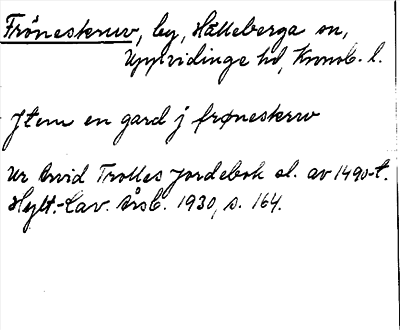 Fröneskruv, by, Hälleberga sn,
Uppvidinge hd, Kronob. l.
Jtem en gard j frøneskrw
Ur Arvid Trolles jordebok sl. av 1490-t.
Hylt.-Cav. Årsb. 1930, s. 164.